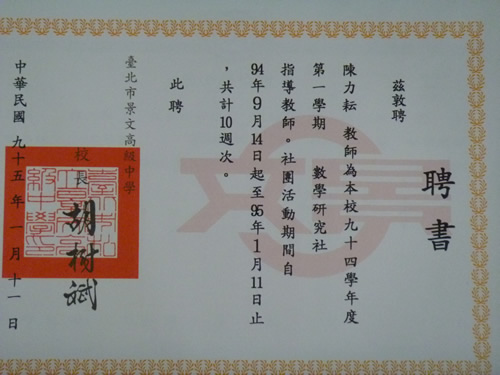 聘書
茲敦聘
陳力耘 教師為本校九十四學年度
第一學期 數學研究社
指導教師。社團活動期間自
94年9月14日起至95年1月11日止
，共計10週次。
此聘
臺北市景文高級中學
校長 胡樹斌
中華民國 九十五 年 一 月 十一 日